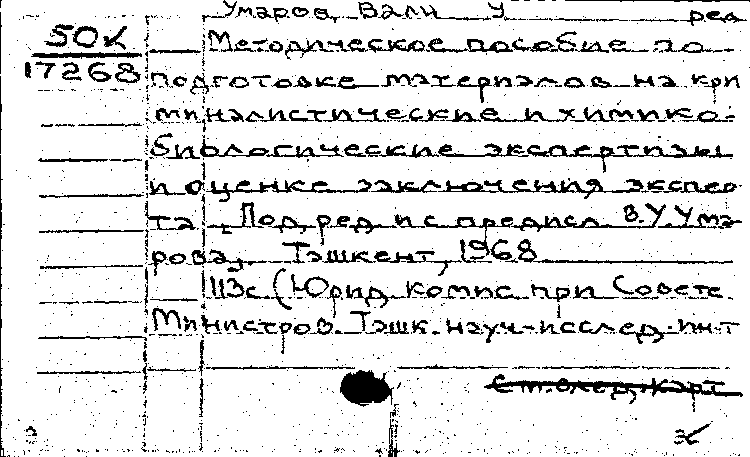 Умаров, Вали У ред
50к
17268
Методическое пособие по
подготовке материалов на кри
миналистические и химико-
биологические экспертизы
и оценке заключения экспер
та. Под ред. и с предисл. В.У. Ума-
рова. Ташкент, 1968
113с (Юрид. комис. при Совете
Министров. Ташк. науч-исслед. ин-т
См. след. карт